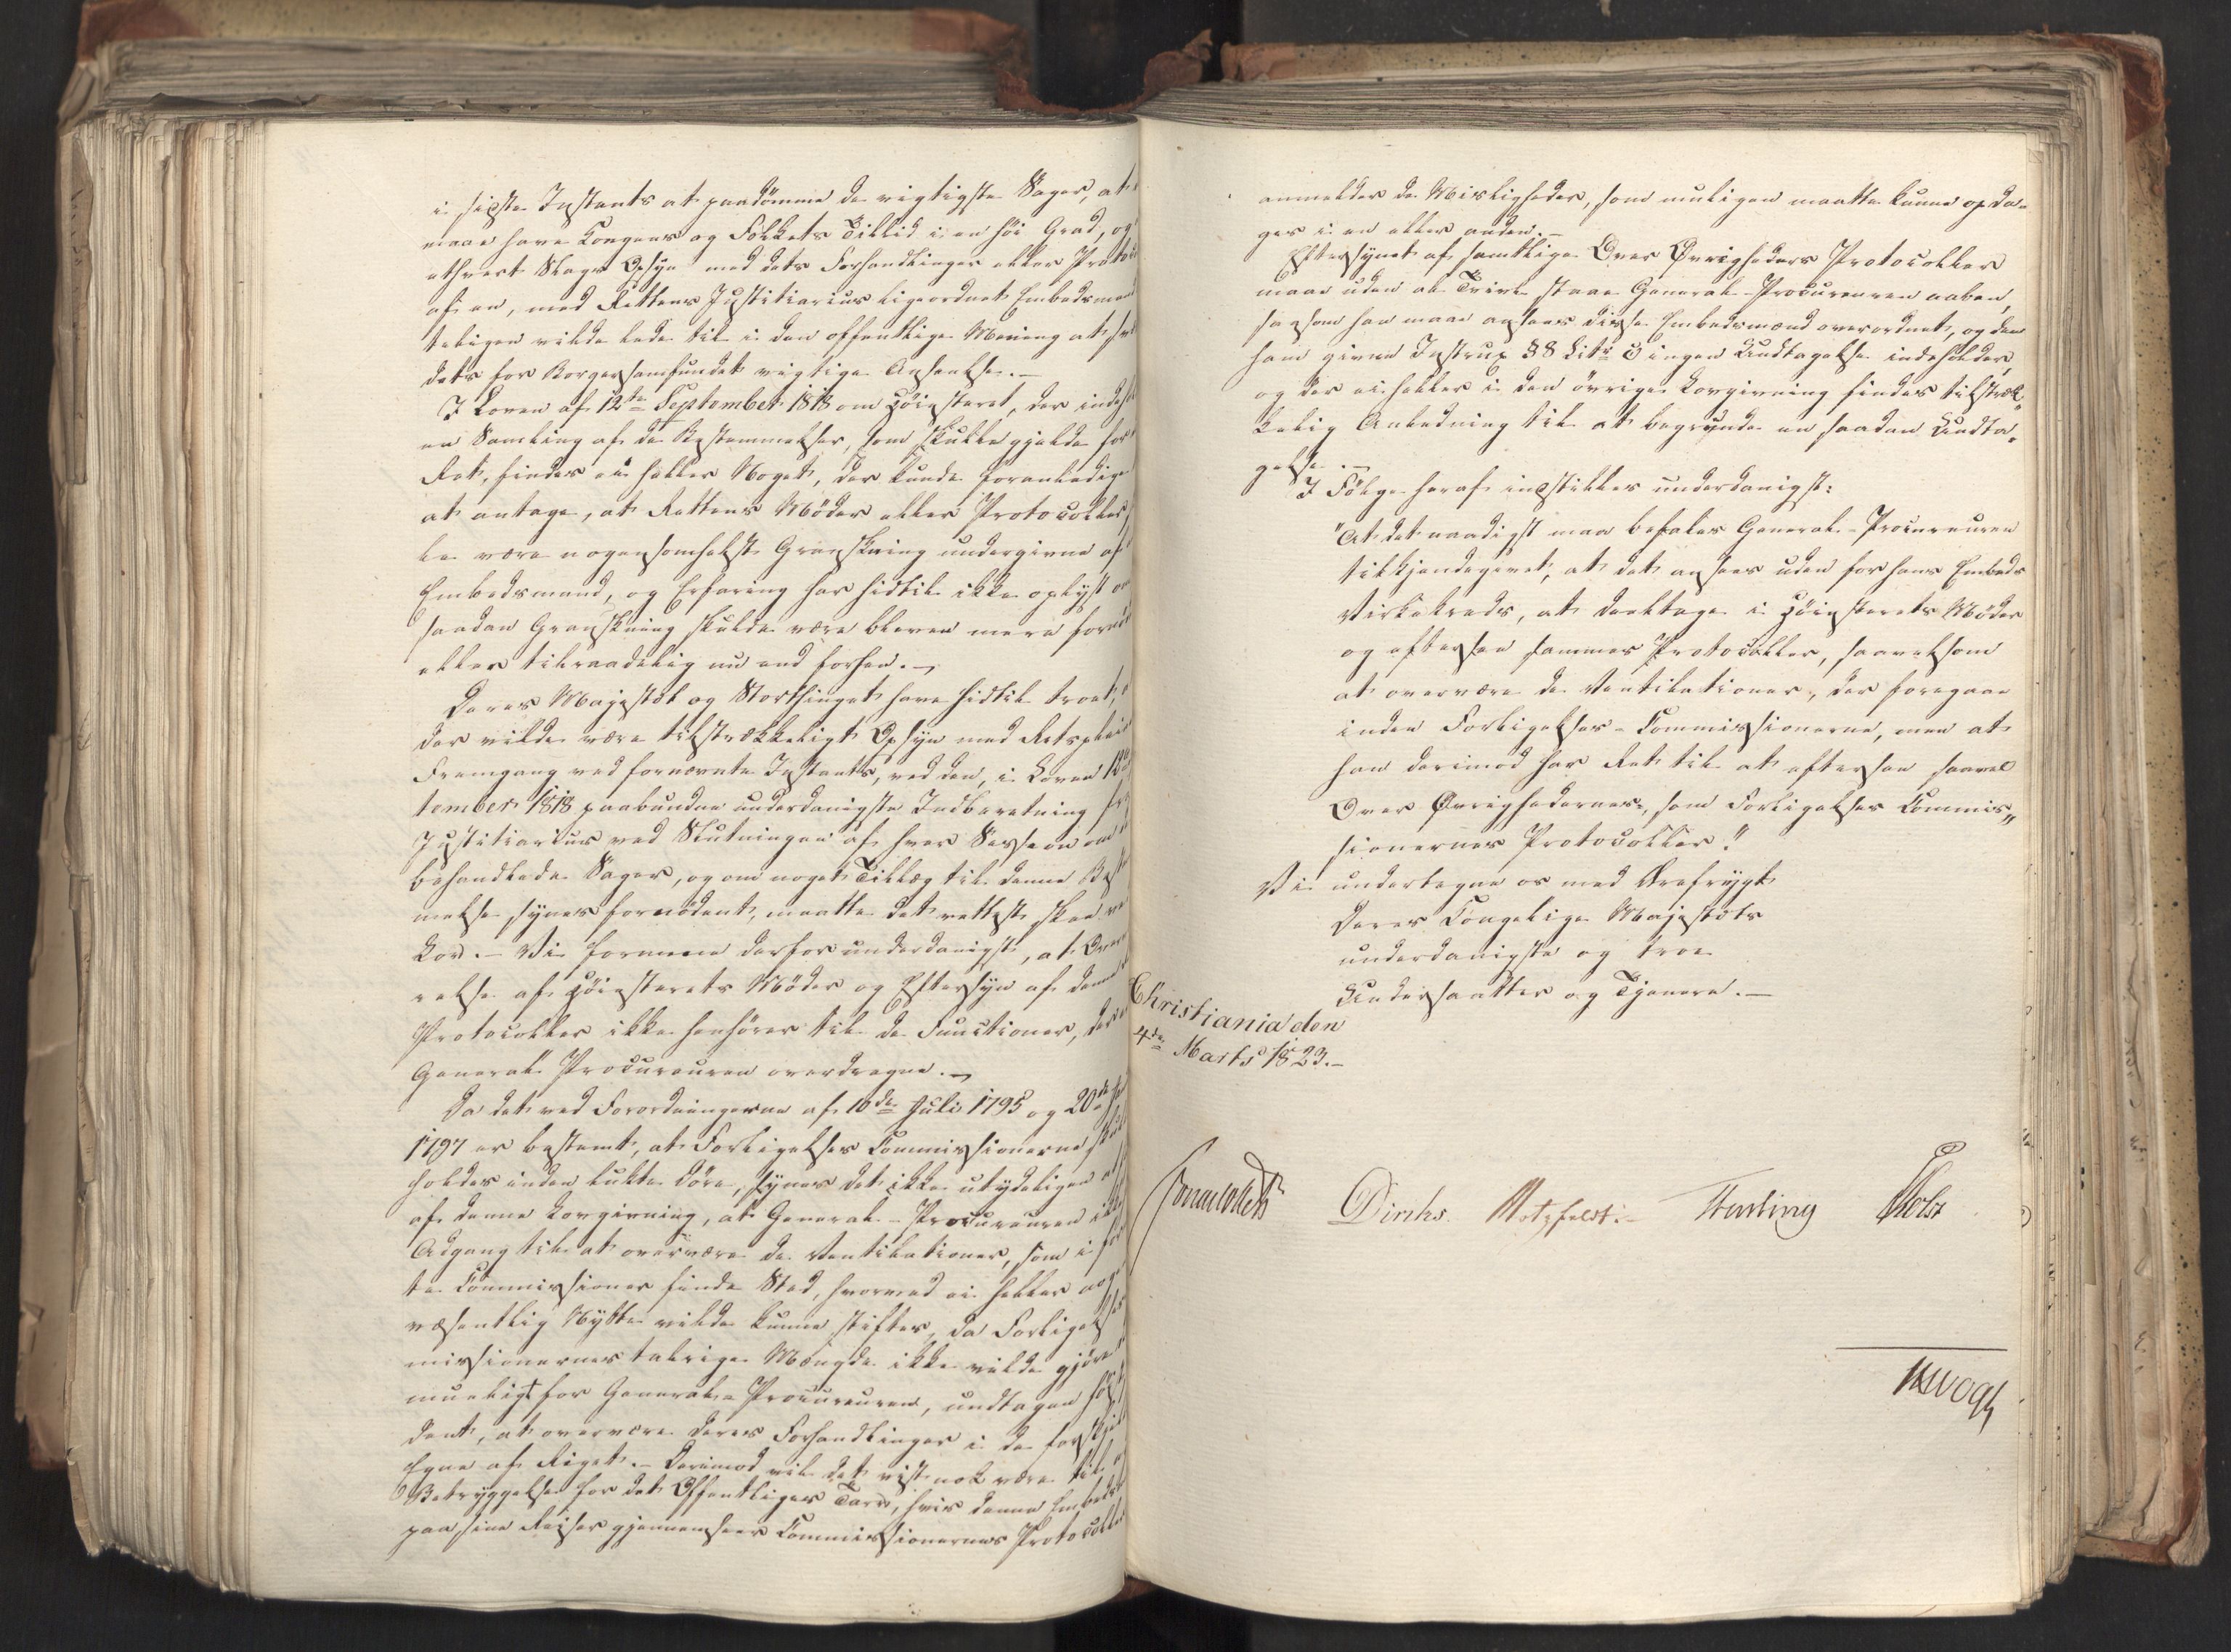 i sidste Instants at paadömme de vigtigste Sager, at
maae have Kongens og Folkets Tillid i en høi Grad, og
ethvert Slags Opsyn med dets Forhandlinger eller Proto
af en, med Rettens Justitiarius ligeordnet Embedsmand
teligen vilde lede til i den offentlige Mening at
dets for Borgersamfundet vigtige Anseelse. –
I Loven af 12te September 1818 om Höiesteret, der indeh
en Samling af de Bestemmelser, som skulle gjelde for
Ret, findes ei heller Noget, der kunde foranledige
at antage, at Rettens Möder eller Protocoller,
le være nogensomhelst Granskning undergivne af
Embedsmand, og Erfaring har hidtil ikke oplyst
saadan Granskning skulde være bleven mere forn
eller tilraadelig nu end forhen. –
Deres Majestæt og Storthinget have hidtil troet,
der vilde være tilstrækkeligt Opsyn med Retspleie
Fremgang ved fornævnte Instants, ved den, i Loven 12te
tember 1818 paabundne underdanigste Indberetning fr
Justitiarius ved Slutningen af hver Session om
behandlede Sager, og om noget Tillæg til denne Best
melse synes fornödent, maatte det rettest skee ve
Lov. – Vi formene derfor underdanigst, at Overv
relse af Höiesterets Möder og Eftersyn af denne
Protocoller ikke henhörer til de Functioner, der
General Procureuren overdragne. –
Da det ved Forordningerne af 10de Juli 1795 og 20de
1797 er bestemt, at Forligelses Commissionerne skul
holdes inden lukte Döre, synes det ikke utydeligen
af denne Lovgivning, at General-Procureuren ikke
Adgang til at overvære de Ventilationer, som i
te Commissioner finde Sted, hvorved ei heller noge
væsentlig Nytte vilde kunne stiftes, da Forligel
missionernes talrige Mængde ikke vilde gjöre
mueligt for General-Procureuren, undtagen höist
dent, at overvære deres Forhandlinger i de forskjel
Egne af Riget. – Derimod vil det vist nok være til
Betryggelse for det Offentliges Tarv, hvis denne Embeds
paa sine Reiser gjennemseer Commissionernes Protocolle
anmelder de Misligheder, som muligen maatte kunne opda-
ges i en eller anden. –
Eftersynet af samtlige Over Øvrigheders Protocoller
maae uden al Tvivl staae General-Procureuren aaben,
saasom han maae ansees disse Embedsmænd overordnet, og den
ham givne Instrux § 8 Litr ingen Undtagelse indeholder,
og der ei heller i den övrige Lovgivning findes tilstræk„
kelig Anledning til at begrunde en saadan Undta„
gelse. –
I Fölge heraf indstilles underdanigst:
"At det naadigst maa befales General-Procureuren
tilkjendegivet, at det ansees uden for hans Embeds
Virkekreds, at deeltage i Höiesterets Möder
og eftersee sammes Protocoller, saavelsom
at overvære de Ventilationer, der foregaae
inden Forligelses-Commissionerne, men at
han derimod har Ret til at eftersee saavel
Over Øvrighedernes, som Forligelses Commis„
sionernes Protocoller."
Vi undertegne os med Ærefrygt
Deres Kongelige Majestæts
underdanigste og troe
Undersaatter og Tjenere. –
Christiania den
4de Marts 1823. –
Jonas Collett Diriks. Motzfeldt. – Fasting Holst
JHVogt